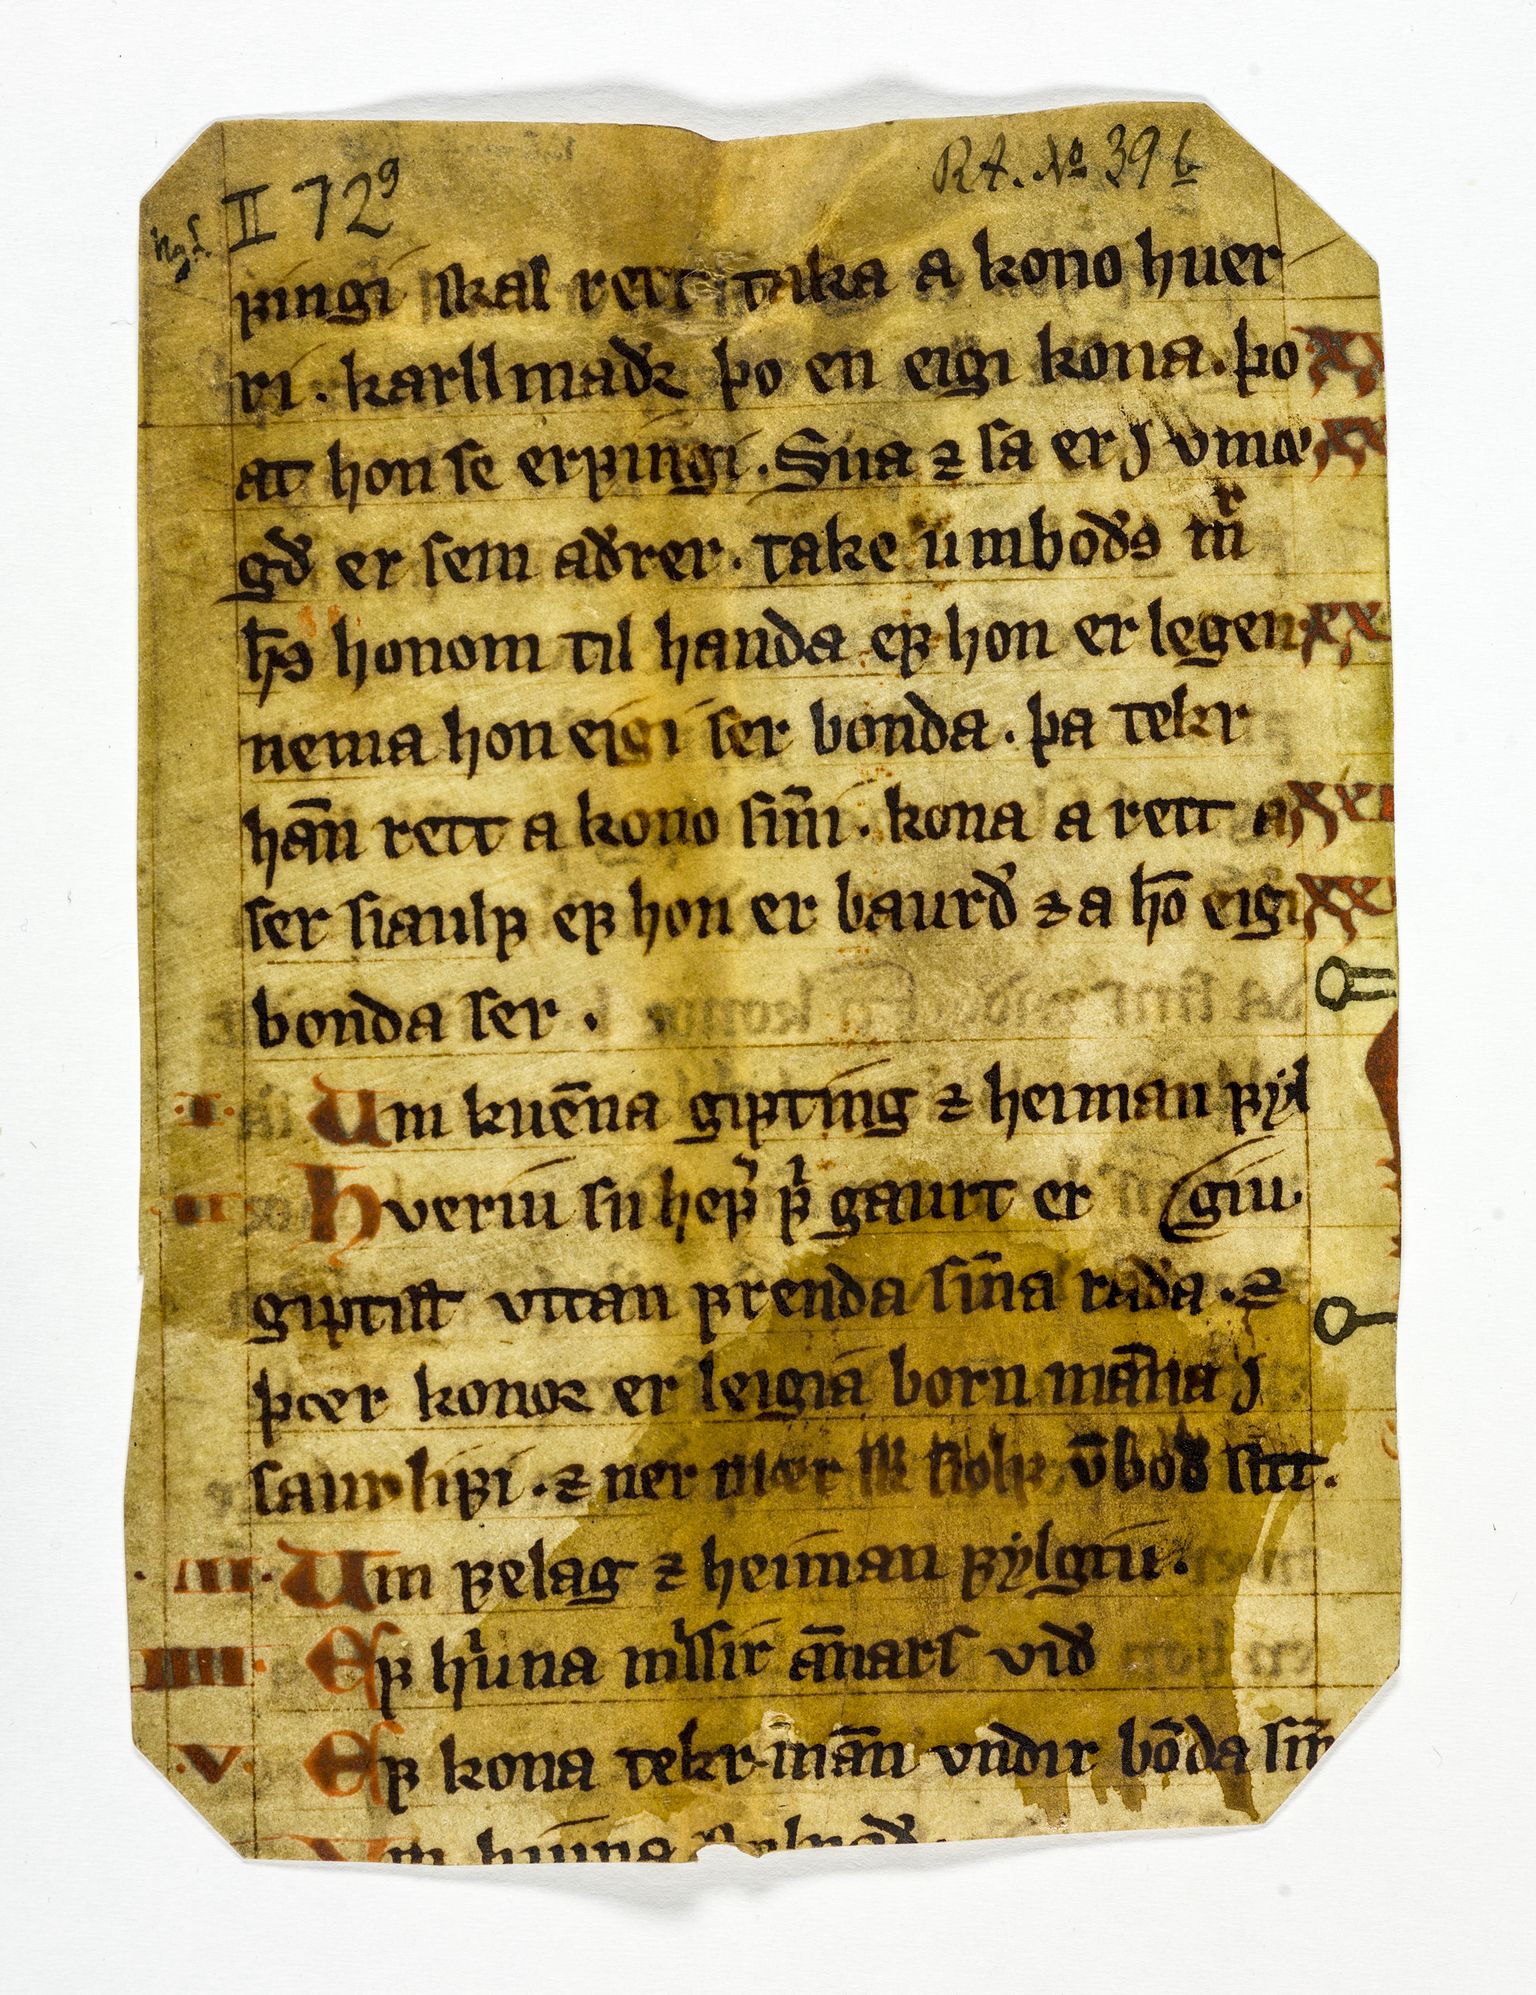 NgL II 72⁹
RA. No 39 b
ꝼingi skal rett taka a kono huer
ri . karllmaðꝛ þo en eigi kona . þo
at hon se erꝼingi . Sua ⁊ sa er J vmæ
gð er sem aðrer . take umboðs mͬ
hs̄ honom til handa eꝼ hon er legen
nema hon eigi ser bonda . þa tekr
han̄ rett a kono sin̄i . kona a rett a
ser siaulꝼ eꝼ hon er baurð ⁊ a hō eigi
bonda ser .
.I. Um kuēna giꝼting ⁊ heiman ꝼyl
.II. Hveriu su heꝼ̓ ꝼͥ gaurt er (giu.
giꝼtist vttan ꝼrenda sin̄a raða . ⁊
þær konoꝛ er leigia born man̄a J
saurliꝼi . ⁊ ner mær sk̄ siolꝼ v̄boð sitt .
.III. Um ꝼelag ⁊ heiman ꝼylgiu .
IIII Eꝼ hͥuna mͥssir an̄ars við
.V. Eꝼ kona tekr man̄ vndir bōda sin̄
Vm
XX
XX
XX